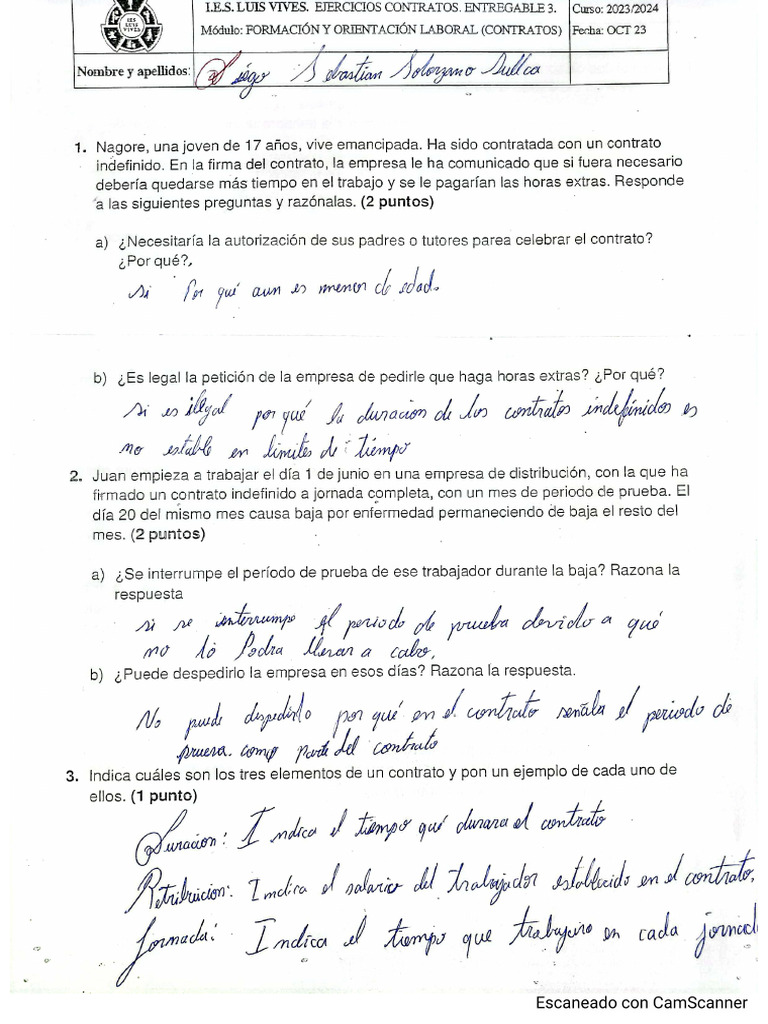 IES
LUIS
VIVES
I.E.S. LUIS VIVES. EJERCICIOS CONTRATOS. ENTREGABLE 3.
Curso: 2023/2024
Módulo: FORMACIÓN Y ORIENTACIÓN LABORAL (CONTRATOS)
Fecha: OCT 23
Nombre y apellidos: Diego Sebastian Solorzano Sullca
1. Nagore, una joven de 17 años, vive emancipada. Ha sido contratada con un contrato
indefinido. En la firma del contrato, la empresa le ha comunicado que si fuera necesario
debería quedarse más tiempo en el trabajo y se le pagarían las horas extras. Responde
a las siguientes preguntas y razónalas. (2 puntos)
a) ¿Necesitaría la autorización de sus padres o tutores parea celebrar el contrato?
¿Por qué?,
si Por qué aun es menor de edad.
b) ¿Es legal la petición de la empresa de pedirle que haga horas extras? ¿Por qué?
si es ilegal por qué la duracion de los contratos indefinidos es
no estable en limites de tiempo
2. Juan empieza a trabajar el día 1 de junio en una empresa de distribución, con la que ha
firmado un contrato indefinido a jornada completa, con un mes de periodo de prueba. El
día 20 del mismo mes causa baja por enfermedad permaneciendo de baja el resto del
mes. (2 puntos)
a) ¿Se interrumpe el período de prueba de ese trabajador durante la baja? Razona la
respuesta
si se interrumpe el periodo de prueba devido a qué
no lo Podra llevar a cabo.
b) ¿Puede despedirlo la empresa en esos días? Razona la respuesta.
No puede despedirlo por qué en el contrato señala el periodo de
pruera como parte del contrato
3. Indica cuáles son los tres elementos de un contrato y pon un ejemplo de cada uno de
ellos. (1 punto)
Duracion: Indica el tiempo qué durara el contrato
Retribuicion: Imdica el salario del trabajador establecido en el contrato,
Jornada: Indica el tiempo que trabajara en cada jornad
Escaneado con CamScanner